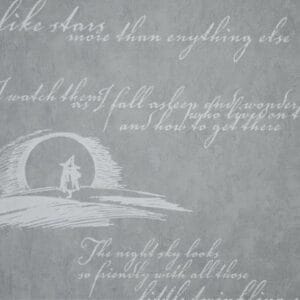 like stars
more than enything else
I watch them
as I fall asleep and wonder
who lives on t
and how to get there
The night sky looks
so friendly with all those
little twinkling